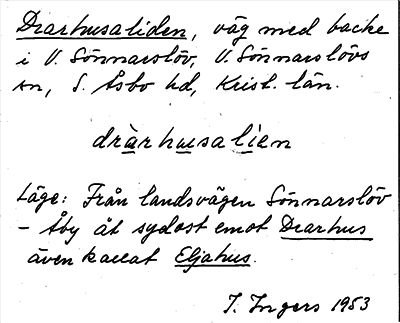 Drarhusaliden, väg med backe
i V. Sönnarslöv, V. Sönnarslövs
sn, S. Åsbo hd, Krist. län.
dràrhusalìen
Läge: Från landsvägen Sönnarslöv
- Åby åt sydost emot Drarhus
även kallat Eljahus.
I. Ingers 1953